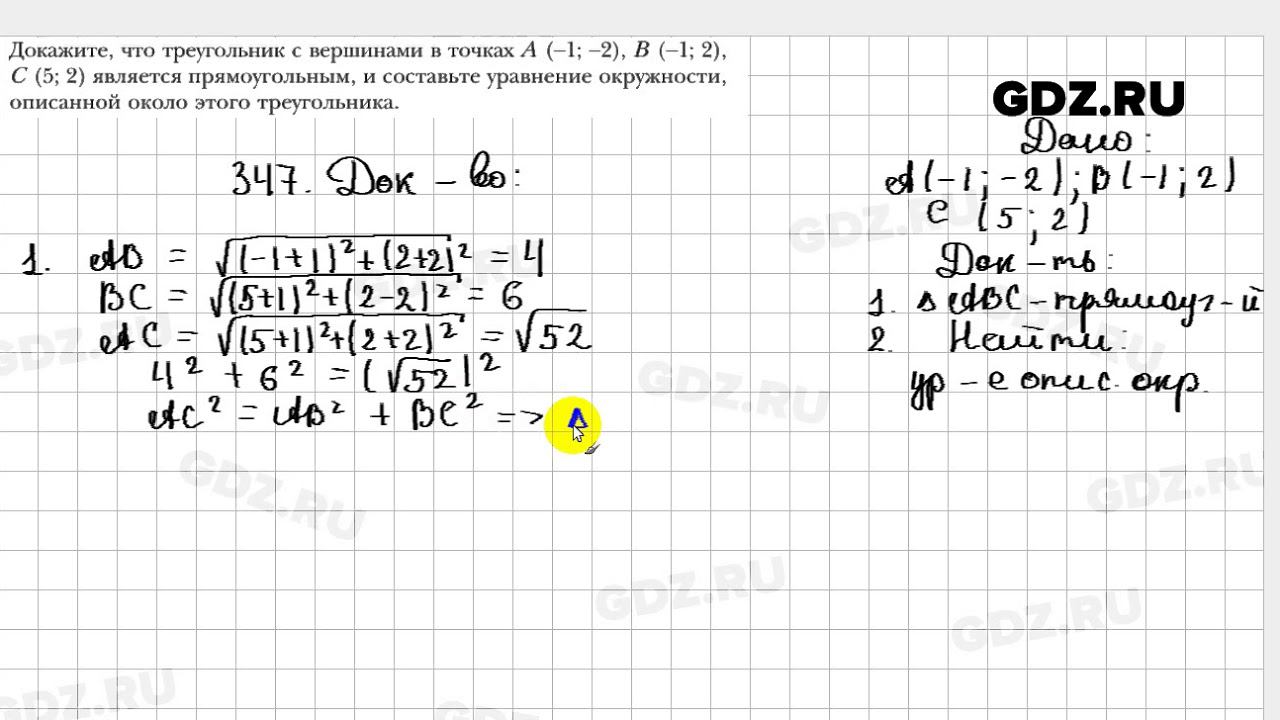 Докажите, что треугольник с вершинами в точках A (–1; –2), B (–1; 2),
C (5; 2) является прямоугольным, и составьте уравнение окружности,
описанной около этого треугольника.
GDZ.RU
Дано:
A(-1; -2); B(-1; 2)
C (5; 2)
Док-ть:
1. △ABC - прямоуг-й
2. Найти:
ур-е опис. окр.
347. Док-во:
1. AB = √(-1+1)²+(2+2)² = 4
BC = √(5+1)²+(2-2)² = 6
AC = √(5+1)²+(2+2)² = √52
4² + 6² = (√52)²
AC² = AB² + BC² =>
GDZ.RU
GDZ.RU
GDZ.RU
GDZ.RU
GDZ.RU
GDZ.RU
GDZ.RU
GDZ.RU
GDZ.RU
GDZ.RU
GDZ.RU